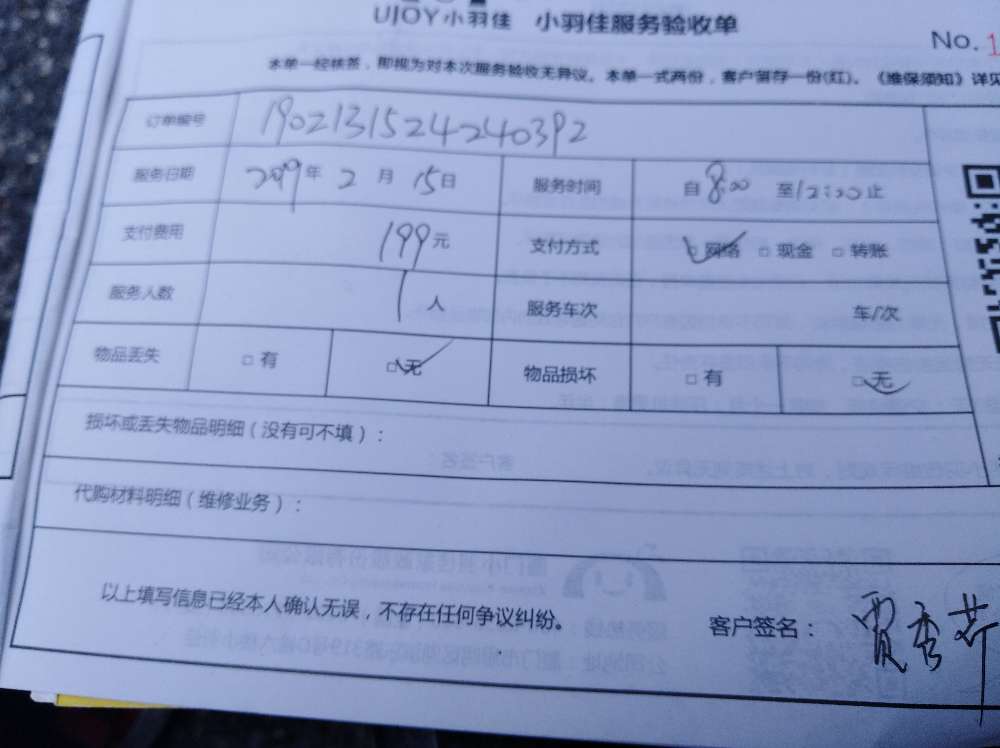 UJOY小羽佳 小羽佳服务验收单
No.1
本单一经核签，即视为对本次服务验收无异议。本单一式两份，客户留存一份(红)。《维保须知》详见
订单编号 1902131524240392
服务日期 2019年2月15日 服务时间 自8:00至12:00止
支付费用 199元 支付方式 □网络 □现金 □转账
服务人数 1人 服务车次 车/次
物品丢失 □有 □无 物品损坏 □有 □无
损坏或丢失物品明细（没有可不填）：
代购材料明细（维修业务）：
以上填写信息已经本人确认无误，不存在任何争议纠纷。 客户签名：贾秀芹